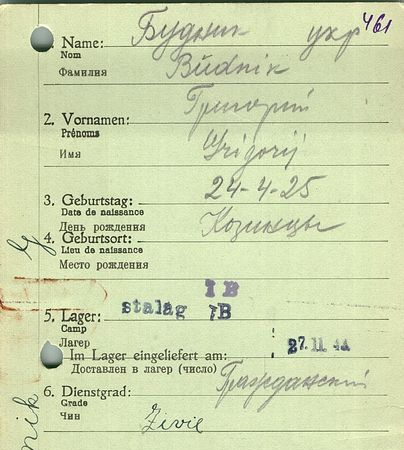 461
1. Name: Будник укр
Nom
Фамилия Budnik
2. Vornamen: Григорий
Prénoms
Имя Grigorij
3. Geburtstag: 24-4-25
Date de naissance
День рождения
4. Geburtsort: Козинцы
Lieu de naissance
Место рождения
I B
5. Lager: stalag IB
Camp
Лагерь
Im Lager eingeliefert am: 27. 11. 44
Доставлен в лагер (число)
6. Dienstgrad: Гражданский
Grade
Чин Zivil
nik